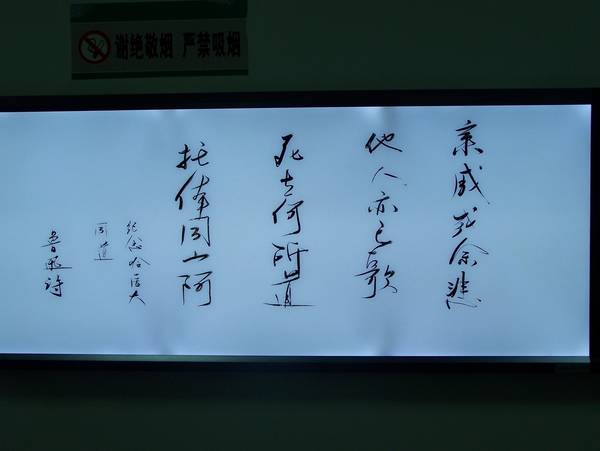 谢绝敬烟 严禁吸烟
亲戚或余悲
他人亦已歌
死去何所道
托体同山阿
纪念哈医大
同道
鲁迅诗